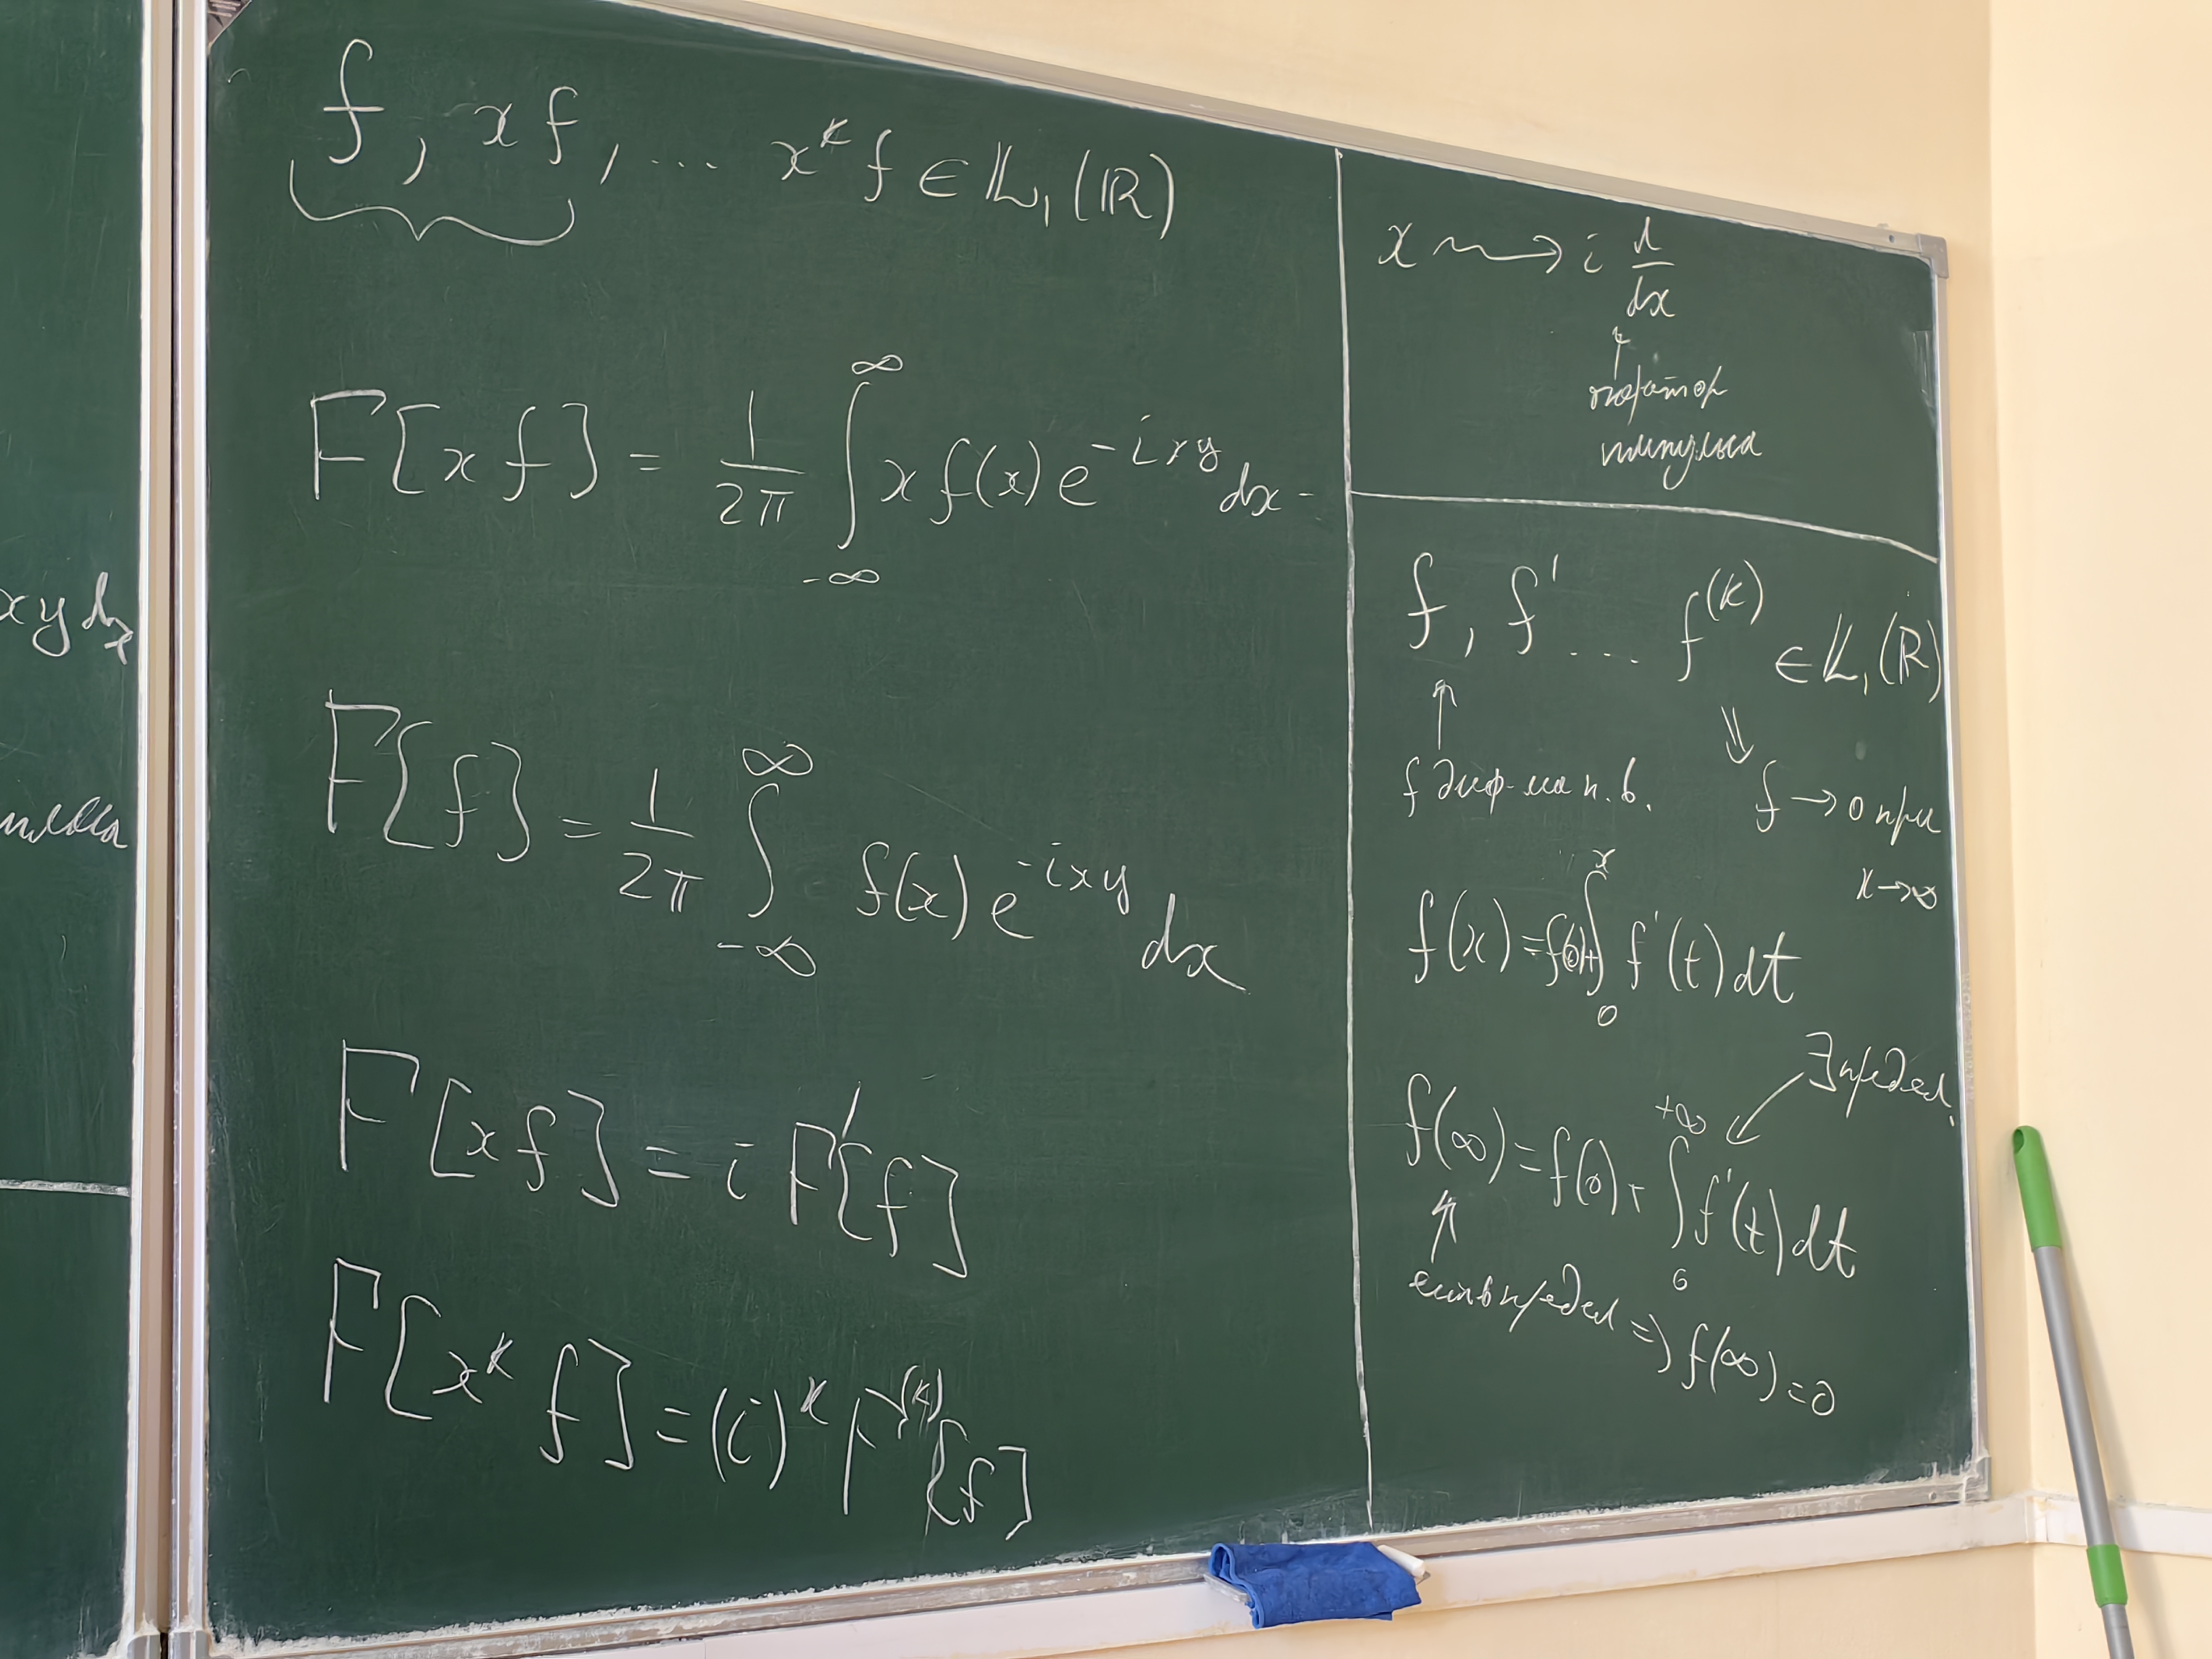 xydx
f, xf, ... x^k f ∈ L₁(ℝ)
F[xf] = 1/2π ∫_{-∞}^{∞} x f(x) e^{-ixy} dx -
F[f] = 1/2π ∫_{-∞}^{∞} f(x) e^{-ixy} dx
F[xf] = i F'[f]
F[x^k f] = (i)^k F^{(k)}[f]
x ⇝ i d/dx
↑
импульса
f, f' ... f^{(k)} ∈ L₁(ℝ)
↑ ⇓
f диф-ма п.в.
f → 0 при
x → ∞
f(x) = f(0) + ∫_0^x f'(t) dt
∃ предел.
f(∞) = f(0) + ∫_0^{+∞} f'(t) dt
⇑
есть предел ⇒ f(∞) = 0